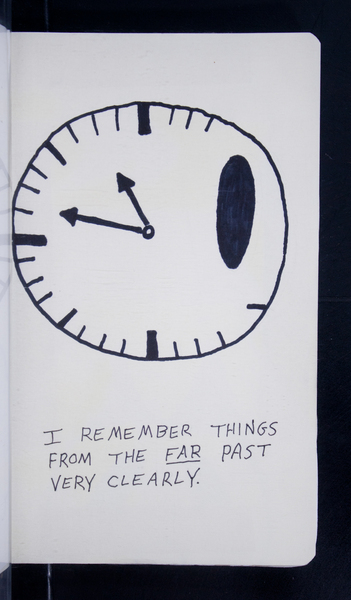 I REMEMBER THINGS
FROM THE FAR PAST
VERY CLEARLY.